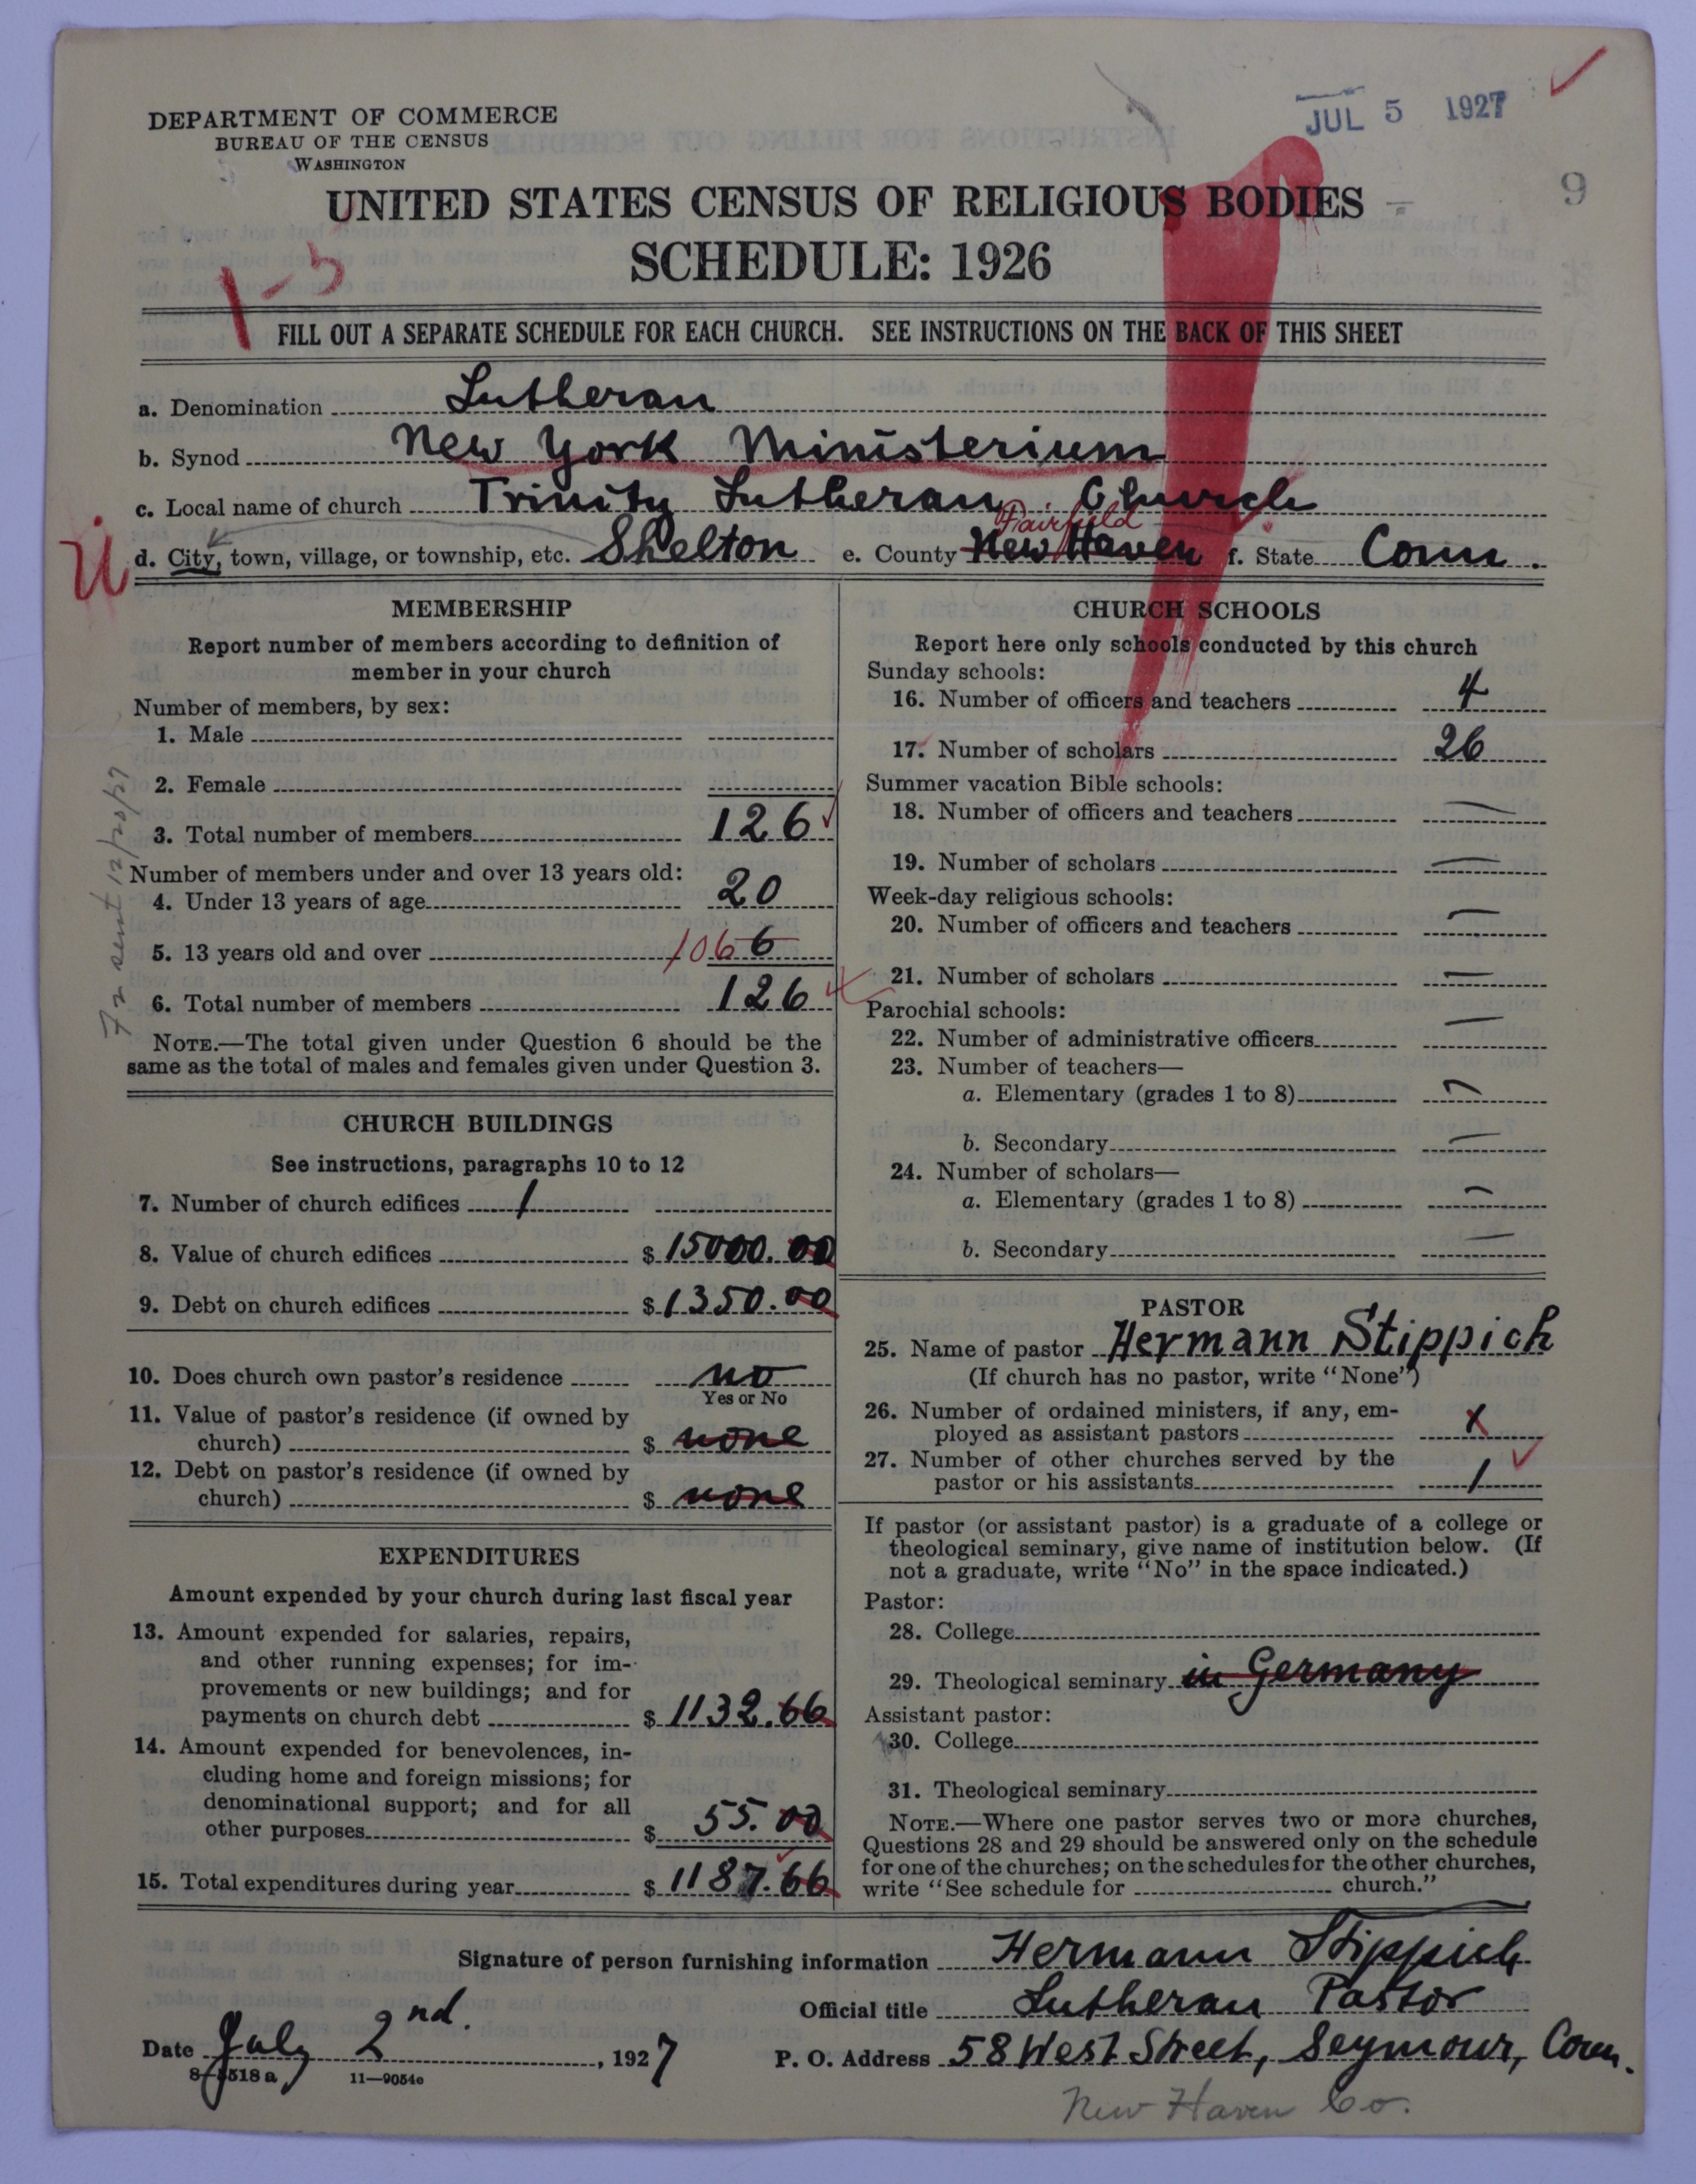 JUL 5 1927
DEPARTMENT OF COMMERCE
BUREAU OF THE CENSUS
WASHINGTON
9
UNITED STATES CENSUS OF RELIGIOUS BODIES
SCHEDULE: 1926
FILL OUT A SEPARATE SCHEDULE FOR EACH CHURCH. SEE INSTRUCTIONS ON THE BACK OF THIS SHEET
a. Denomination Lutheran
b. Synod New York Ministerium
c. Local name of church Trinity Lutheran Church
Fairfield
d. City, town, village, or township, etc. Shelton e. County New Haven f. State Conn.
MEMBERSHIP
Report number of members according to definition of
member in your church
Number of members, by sex:
1. Male
2. Female
3. Total number of members 126
Number of members under and over 13 years old:
4. Under 13 years of age 20
5. 13 years old and over 106 6
6. Total number of members 126
NOTE.—The total given under Question 6 should be the
same as the total of males and females given under Question 3.
sent 12/20/27
CHURCH BUILDINGS
See instructions, paragraphs 10 to 12
7. Number of church edifices 1
8. Value of church edifices $ 15000.00
9. Debt on church edifices $ 1350.00
10. Does church own pastor's residence no
Yes or No
11. Value of pastor's residence (if owned by
church) $ none
12. Debt on pastor's residence (if owned by
church) $ none
EXPENDITURES
Amount expended by your church during last fiscal year
13. Amount expended for salaries, repairs,
and other running expenses; for im-
provements or new buildings; and for
payments on church debt $ 1132.66
14. Amount expended for benevolences, in-
cluding home and foreign missions; for
denominational support; and for all
other purposes $ 55.00
15. Total expenditures during year $ 1187.66
CHURCH SCHOOLS
Report here only schools conducted by this church
Sunday schools:
16. Number of officers and teachers 4
17. Number of scholars 26
Summer vacation Bible schools:
18. Number of officers and teachers —
19. Number of scholars —
Week-day religious schools:
20. Number of officers and teachers —
21. Number of scholars —
Parochial schools:
22. Number of administrative officers —
23. Number of teachers—
a. Elementary (grades 1 to 8) —
b. Secondary —
24. Number of scholars—
a. Elementary (grades 1 to 8) —
b. Secondary —
PASTOR
25. Name of pastor Hermann Stippich
(If church has no pastor, write "None")
26. Number of ordained ministers, if any, em-
ployed as assistant pastors x
27. Number of other churches served by the
pastor or his assistants 1
If pastor (or assistant pastor) is a graduate of a college or
theological seminary, give name of institution below. (If
not a graduate, write "No" in the space indicated.)
Pastor:
28. College
29. Theological seminary in Germany
Assistant pastor:
30. College
31. Theological seminary
NOTE.—Where one pastor serves two or more churches,
Questions 28 and 29 should be answered only on the schedule
for one of the churches; on the schedules for the other churches,
write "See schedule for church."
Signature of person furnishing information Hermann Stippich
Official title Lutheran Pastor
Date July 2nd., 1927 P. O. Address 58 West Street, Seymour, Conn.
11—9054e
New Haven Co.